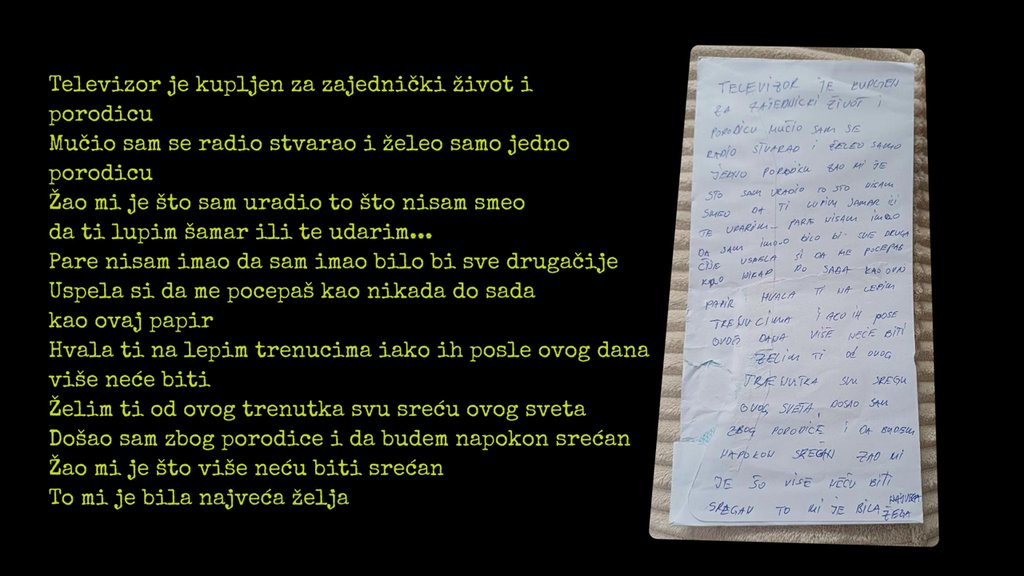 Televizor je kupljen za zajednički život i
porodicu
Mučio sam se radio stvarao i želeo samo jedno
porodicu
Žao mi je što sam uradio to što nisam smeo
da ti lupim šamar ili te udarim...
Pare nisam imao da sam imao bilo bi sve drugačije
Uspela si da me pocepaš kao nikada do sada
kao ovaj papir
Hvala ti na lepim trenucima iako ih posle ovog dana
više neće biti
Želim ti od ovog trenutka svu sreću ovog sveta
Došao sam zbog porodice i da budem napokon srećan
Žao mi je što više neću biti srećan
To mi je bila najveća želja
TELEVIZOR JE KUPLJEN
ZA ZAJEDNICKI ŽIVOT I
PORODICU MUČIO SAM SE
RADIO STVARAO I ŽELEO SAMO
JEDNO PORODICU ŽAO MI JE
STO SAM URADIO TO STO NISAM
SMEO DA TI LUPIM SAMAR ILI
TE UDARIM... PARE NISAM IMAO
DA SAM IMAO BILO BI SVE DRUGA
ČIJE USPELA SI DA ME POCEPAŠ
KAO NIKAD DO SADA KAO OVAJ
PAPIR HVALA TI NA LEPIM
TRENUCIMA I AKO IH POSE
OVOG DANA VIŠE NEĆE BITI
ŽELIM TI OD OVOG
TRENUTKA SVU SREĆU
OVOG SVETA, DOŠAO SAM
ZBOG PORODICE I DA BUDEM
NAPOKON SREĆAN ŽAO MI
JE ŠO VIŠE NEĆU BITI
SREĆAN TO MI JE BILA NAJVEĆA
ŽELA